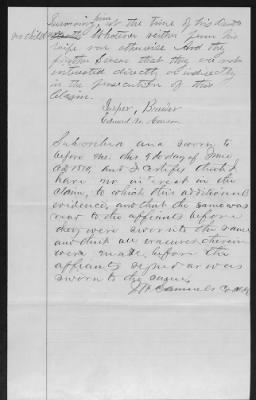 him
Surviving at the time of his death
no children Whatever neither from his
wife nor otherwise And they
further Swear that they are not
interested directly or indirectly
in the presentation of this
Claim.
Jasper, Brewer
Edward
Subscribed and sworn to
before me this 9 th day of June
AD 1890, and I Certify that I
have no interest in the
claim, to which this additional
evidence, and that the same was
read to the affiants before
they were sworn to the same
and that all erasures therein
were made before the
affiants signed or was
sworn to the same
Samuels